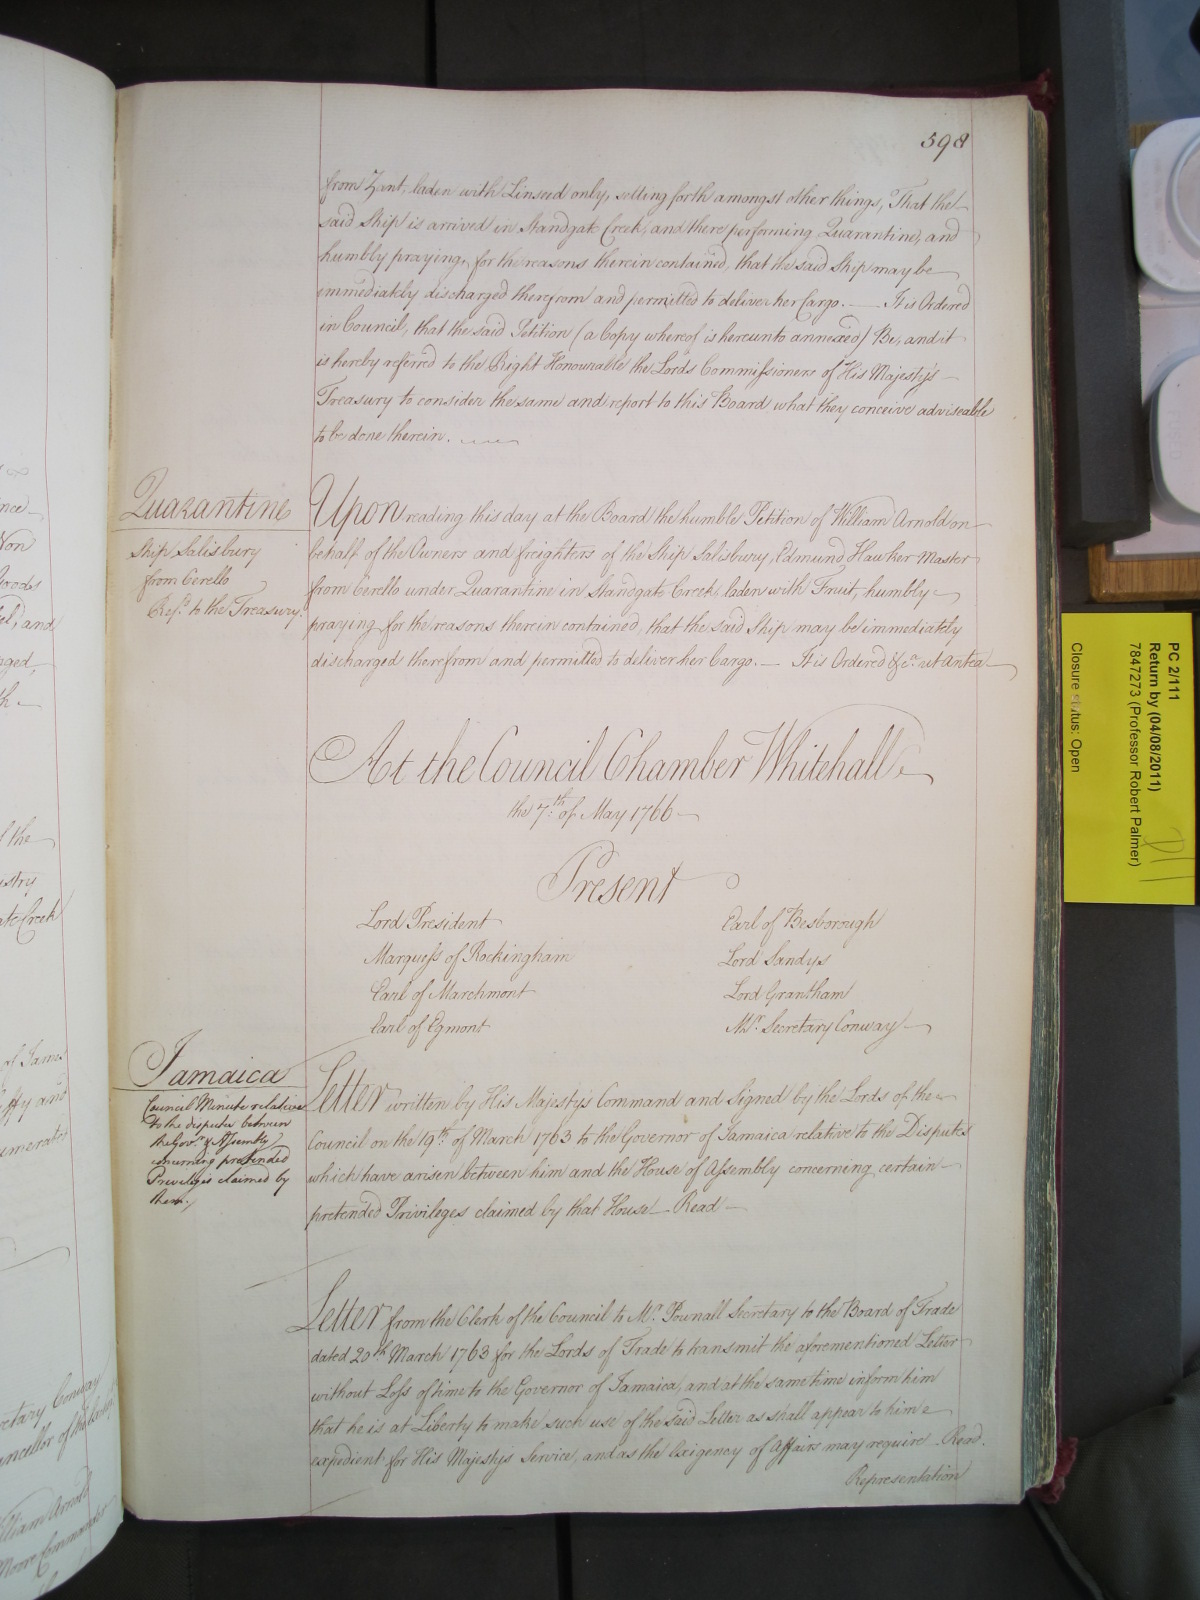 598
from Zant, laden with Linseed only, setting forth amongst other things, That the
said Ship is arrived in Standgate Creek, and there performing Quarantine, and
humbly praying, for the reasons therein contained, that the said Ship may be
immediately discharged therefrom and permitted to deliver her Cargo. — It is Ordered
in Council, that the said Petition (a Copy whereof is hereunto annexed) Be, and it
is hereby referred to the Right Honourable the Lords Commissioners of His Majesty's
Treasury to consider the same and report to this Board what they conceive adviseable
to be done therein.
Quarantine
Ship Salisbury
from Cerello
Ref.d to the Treasury.
Upon reading this day at the Board the humble Petition of William Arnold on
behalf of the Owners and freighters of the Ship Salisbury, Edmund Hawker Master
from Cerello under Quarantine in Standgate Creek, laden with Fruit, humbly
praying for the reasons therein contained, that the said Ship may be immediately
discharged therefrom and permitted to deliver her Cargo. — It is Ordered &c.a ut Antea
At the Council Chamber Whitehall
the 7.th of May 1766
Present
Lord President
Marquess of Rockingham
Earl of Marchmont
Earl of Egmont
Earl of Besborough
Lord Sandys
Lord Grantham
Mr. Secretary Conway
Jamaica
Council Minute relative
to the dispute between
the Gov.r & Assembly
concerning pretended
Privileges claimed by
them.
Letter written by His Majesty's Command and Signed by the Lords of the
Council on the 19th. of March 1763 to the Governor of Jamaica relative to the Disputes
which have arisen between him and the House of Assembly concerning certain
pretended Privileges claimed by that House — Read —
Letter from the Clerk of the Council to Mr. Pownall Secretary to the Board of Trade
dated 20th March 1763 for the Lords of Trade to transmit the aforementioned Letter
without Loss of time to the Governor of Jamaica, and at the same time inform him
that he is at Liberty to make such use of the said Letter as shall appear to him
expedient for His Majestys Service, and as the Exigency of Affairs may require — Read.
Representation
PC 2/111
Return by (04/08/2011)
7847273 (Professor Robert Palmer)
Closure status: Open